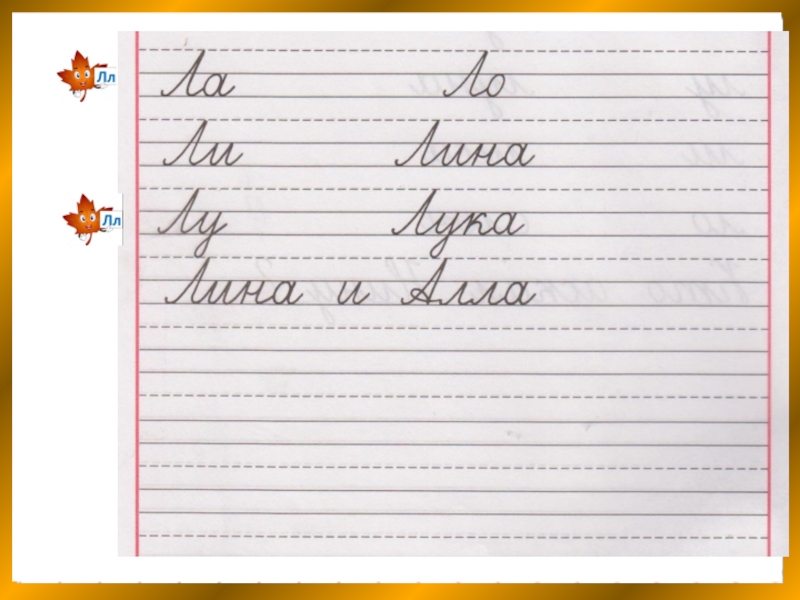 Лл Ла Ло
Ли Лина
Лл Лу Лука
Лина и Алла